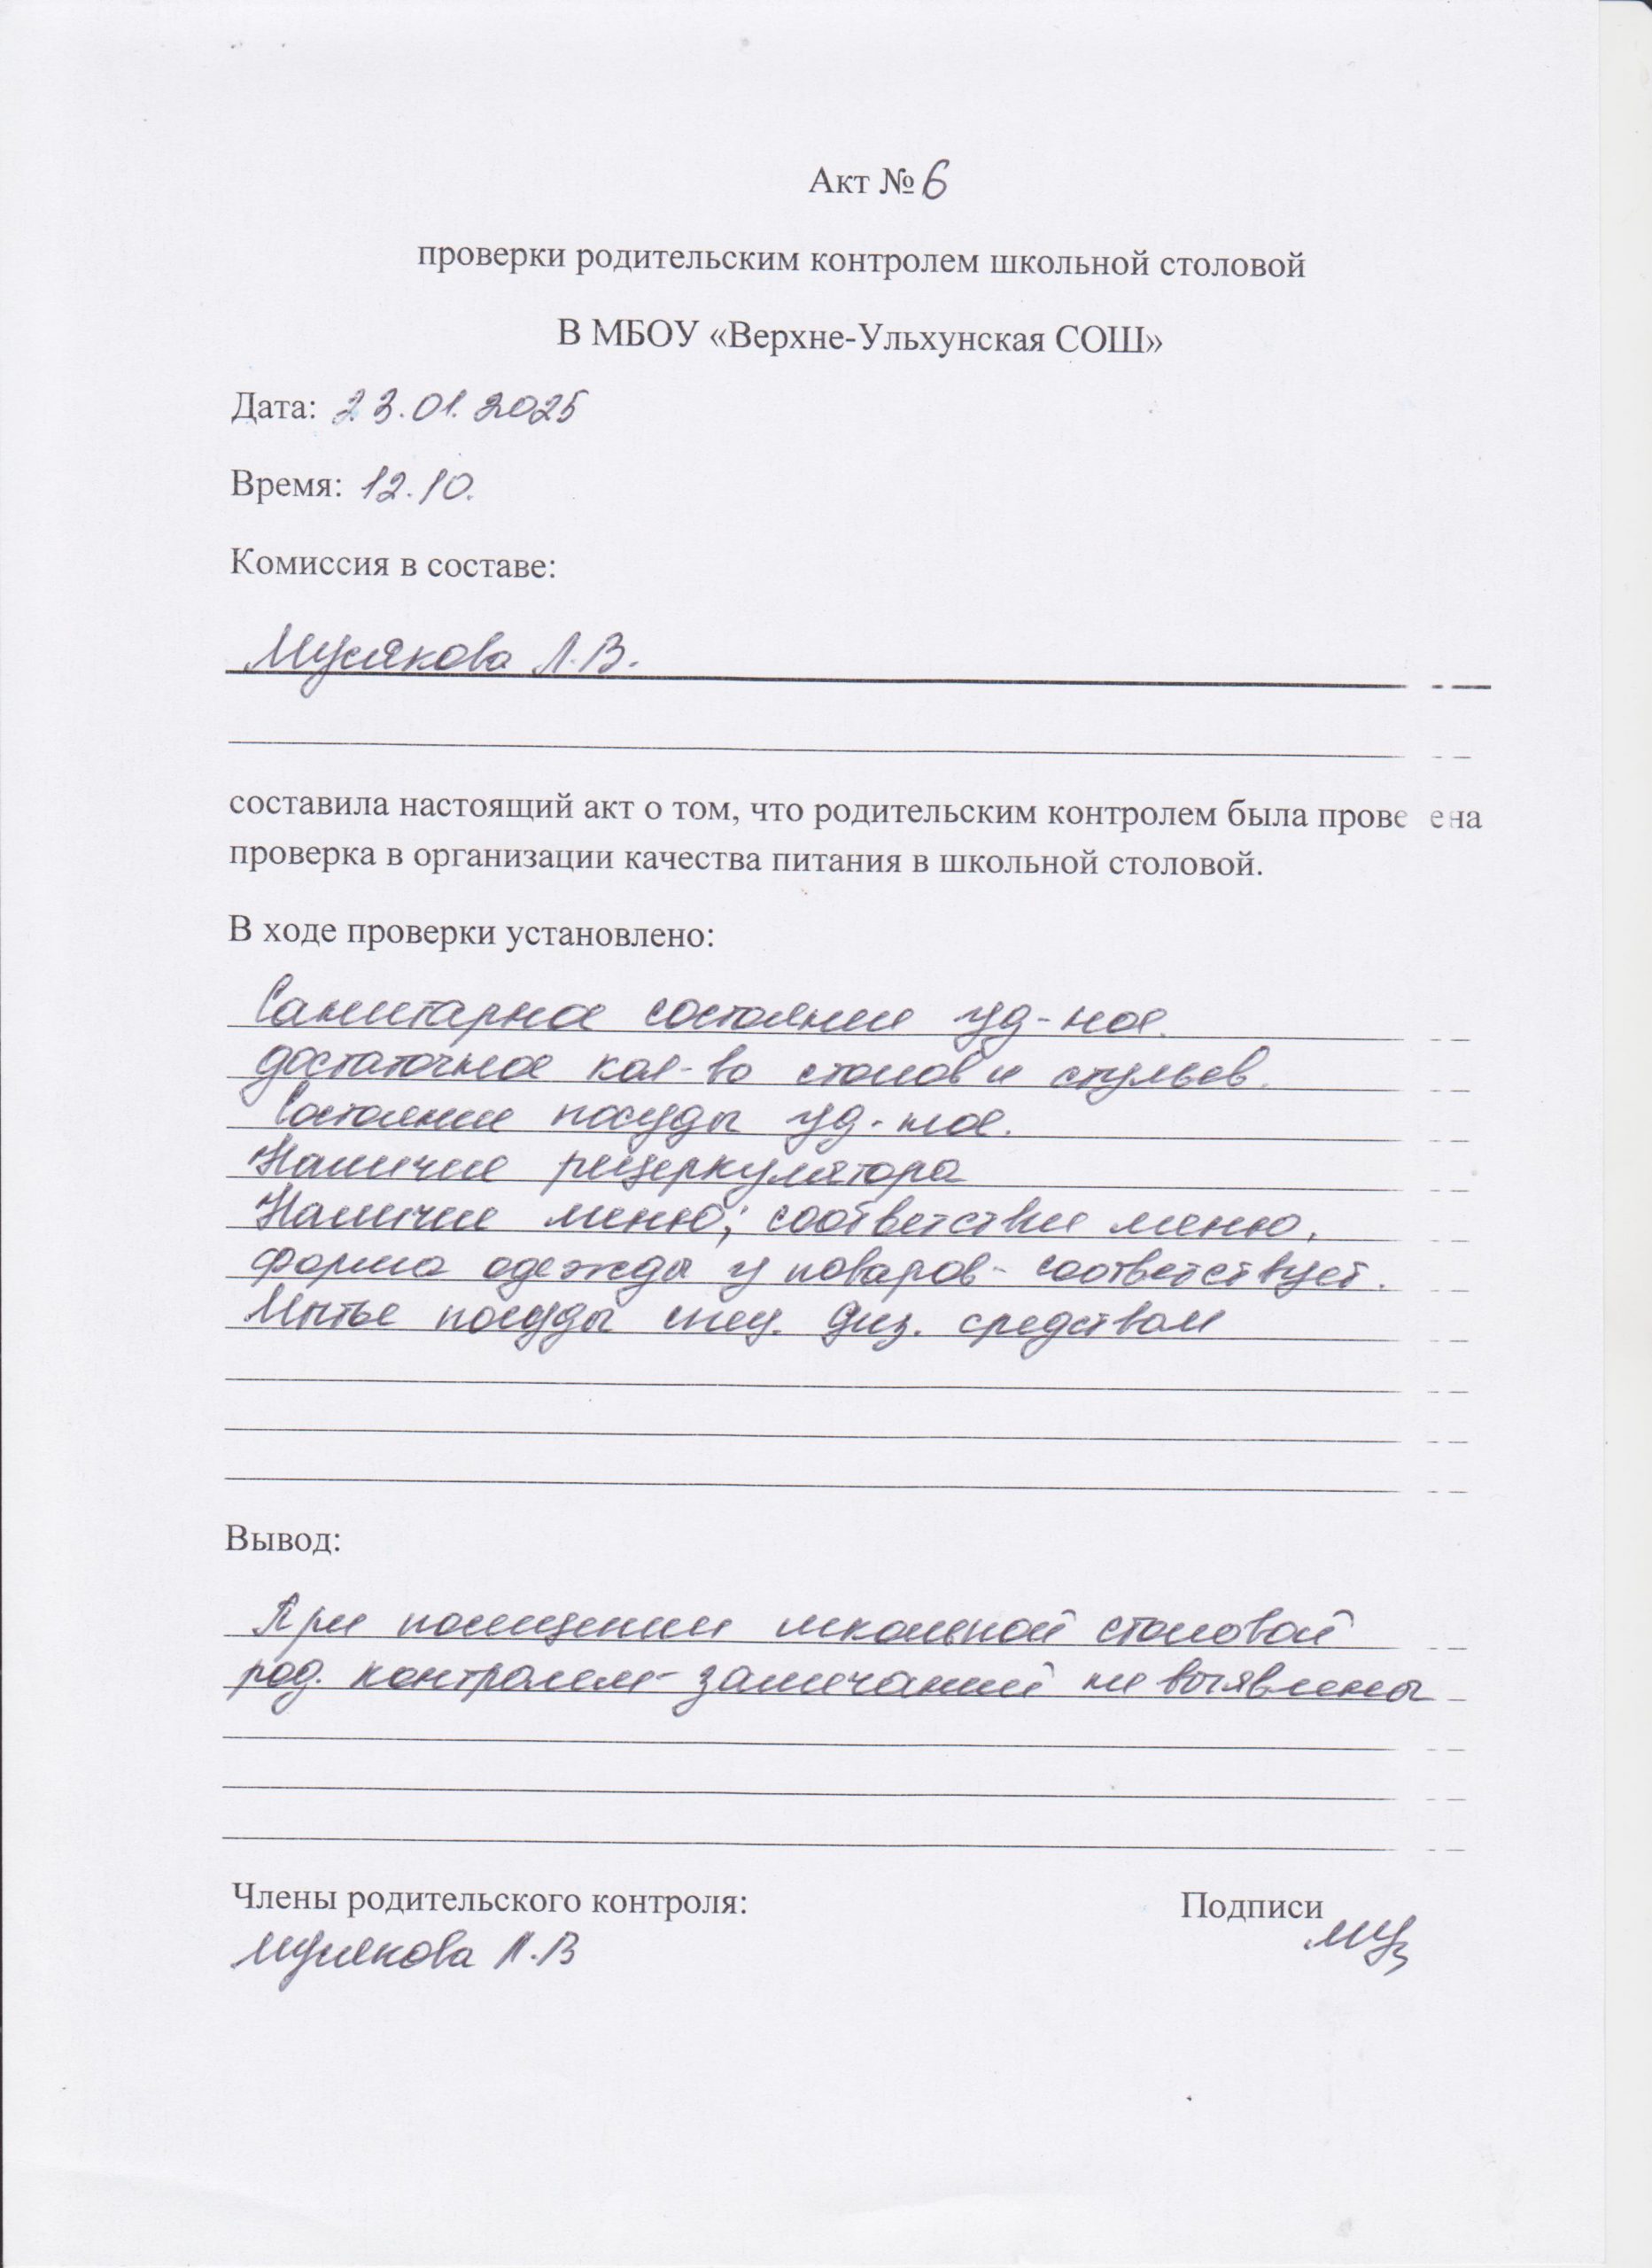 Акт № 6
проверки родительским контролем школьной столовой
В МБОУ «Верхне-Ульхунская СОШ»
Дата: 23.01.2025
Время: 12.10.
Комиссия в составе:
Мусякова Л.В.
составила настоящий акт о том, что родительским контролем была прове ена
проверка в организации качества питания в школьной столовой.
В ходе проверки установлено:
Санитарное состояние уд-ное.
достаточное кол-во столов и стульев.
Состояние посуды уд-ное.
Наличие рециркулятора
Наличие меню; соответствие меню.
Форма одежды у поваров - соответствует.
Мытье посуды спец. диз. средством
Вывод:
При посещении школьной столовой
род. контролем - замечаний не выявлены
Члены родительского контроля:
Подписи
Мусякова Л.В